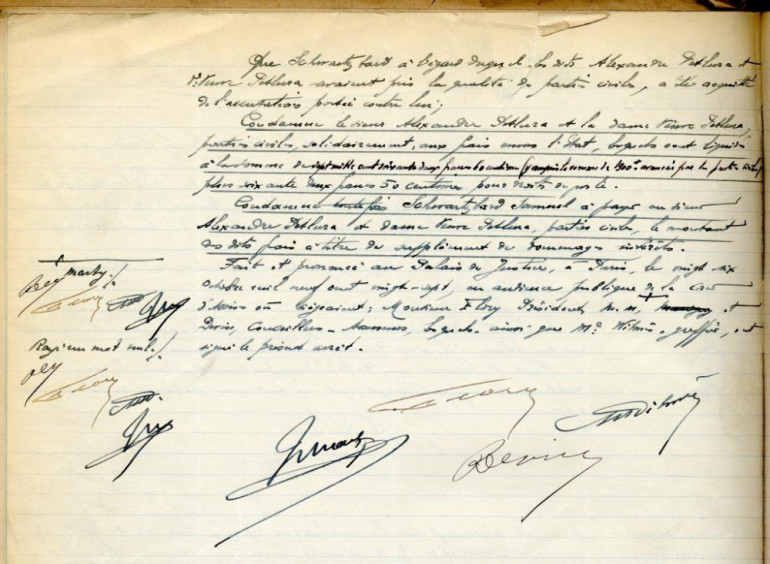 Que Schwartzbard à l'égard duquel les dits Alexandre Petlura et
Vve Petlura avaient pris la qualité de parties civiles, a été acquitté
de l'accusation portée contre lui;
Condamne le sieur Alexandre Petlura et la dame Veuve Petlura,
parties civiles, solidairement, aux frais envers l'Etat, lesquels sont liquidés
à la somme de sept mille cent soixante deux francs
plus soixante deux francs 50 centimes pour droits de poste.
Condamne Schwartzbard Samuel à payer au sieur
Alexandre Petlura et dame Veuve Petlura, parties civiles, le montant
des dits frais à titre de supplément de dommages intérêts.
Fait et prononcé au Palais de Justice, à Paris, le vingt-six
octobre mil neuf cent vingt-sept, en audience publique de la cour
d'assises où siégeaient: Monsieur Flory Président, M.M. et
Devise, Conseillers-Assesseurs, lesquels ainsi que Me Wilmès, greffier, ont
signé le présent arrêt.
marty./.
Flory
Rayé un mot nul./.
Flory
Flory
Marty